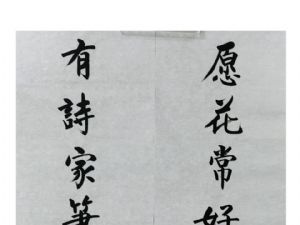 愿花常好
有詩家筆